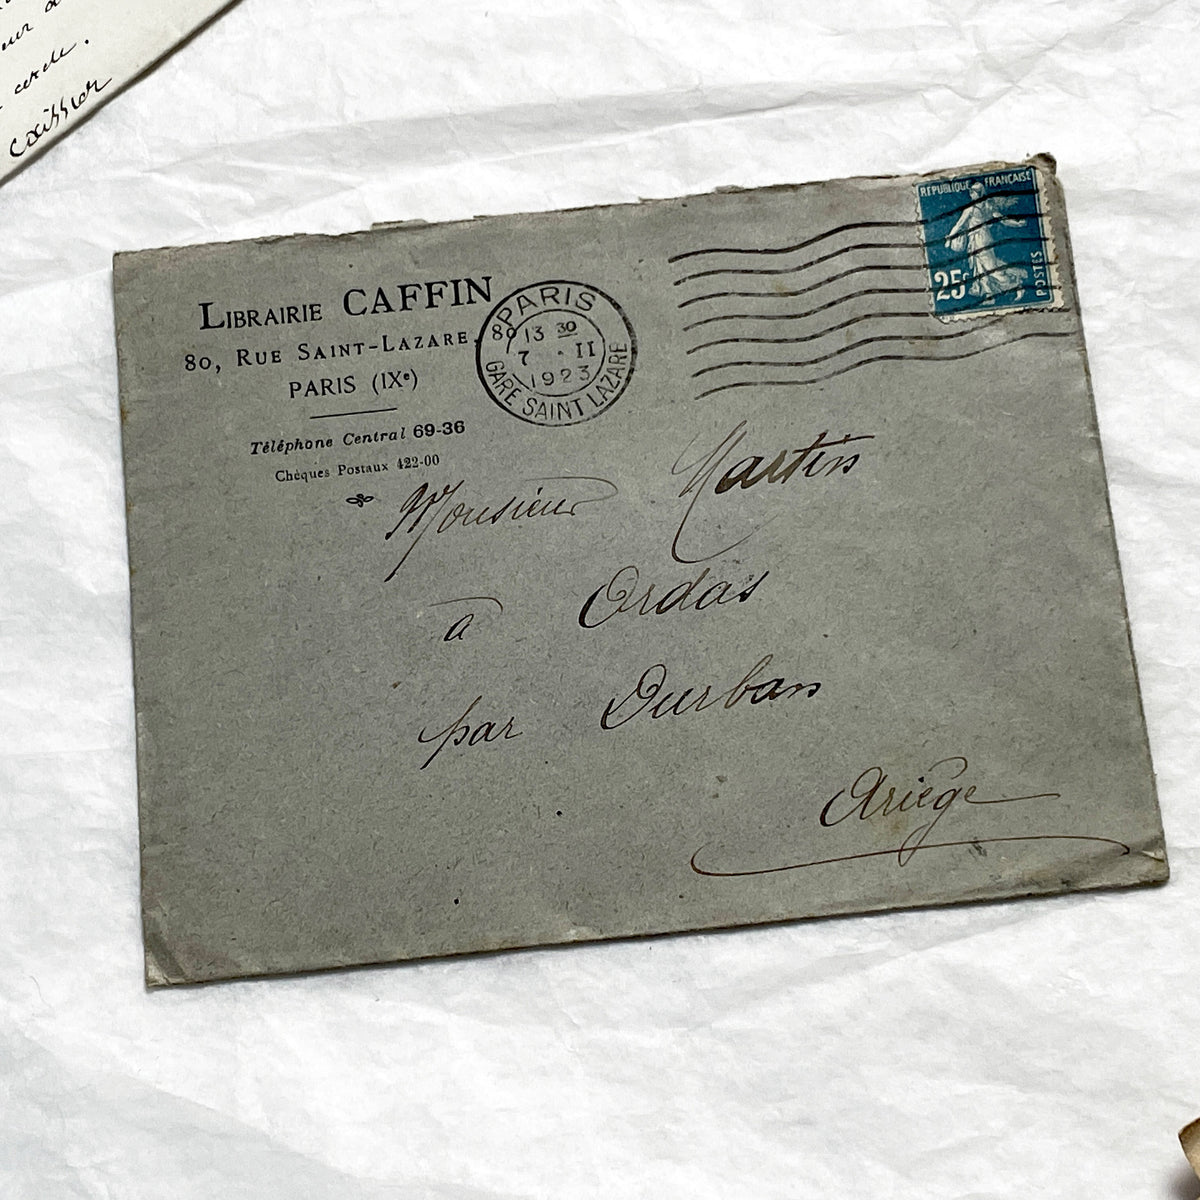 cercle.
caissier
LIBRAIRIE CAFFIN
80, RUE SAINT-LAZARE, 80
PARIS (IXe)
Téléphone Central 69-36
Chèques Postaux 422-00
PARIS
13 30
7 · II
1923
GARE SAINT LAZARE
REPUBLIQUE FRANÇAISE
25c
POSTES
Monsieur Martin
à Ordas
par Durban
Ariège